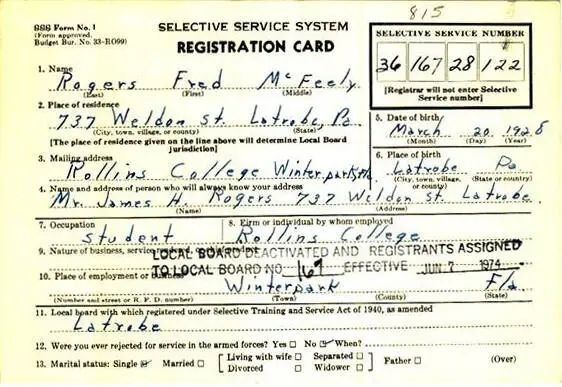 815
SSS Form No. 1
(Form approved,
Budget Bur. No. 33-RO99)
SELECTIVE SERVICE SYSTEM
REGISTRATION CARD
SELECTIVE SERVICE NUMBER
36 167 28 122
[Registrar will not enter Selective
Service number]
1. Name
Rogers Fred McFeely
(Last) (First) (Middle)
2. Place of residence
737 Weldon St. Latrobe, Pa
(City, town, village, or county) (State)
[The place of residence given on the line above will determine Local Board
jurisdiction]
3. Mailing address
Rollins College Winterpark, Fla
4. Name and address of person who will always know your address
Mr. James H. Rogers 737 Weldon St. Latrobe
(Name) (Address)
5. Date of birth
March 20 1928
(Month) (Day) (Year)
6. Place of birth
Latrobe Pa
(City, town, village, or county) (State or country)
7. Occupation
Student
8. Firm or individual by whom employed
Rollins College
9. Nature of business, service
LOCAL BOARD DEACTIVATED AND REGISTRANTS ASSIGNED
TO LOCAL BOARD NO. 167 EFFECTIVE JUN 7 1974
10. Place of employment or business
Winterpark Fla
(Number and street or R. F. D. number) (Town) (County) (State)
11. Local board with which registered under Selective Training and Service Act of 1940, as amended
Latrobe
12. Were you ever rejected for service in the armed forces? Yes ☐ No ☑ When?
13. Marital status: Single ☑ Married ☐ [Living with wife ☐ Separated ☐
Divorced ☐ Widower ☐] Father ☐ (Over)